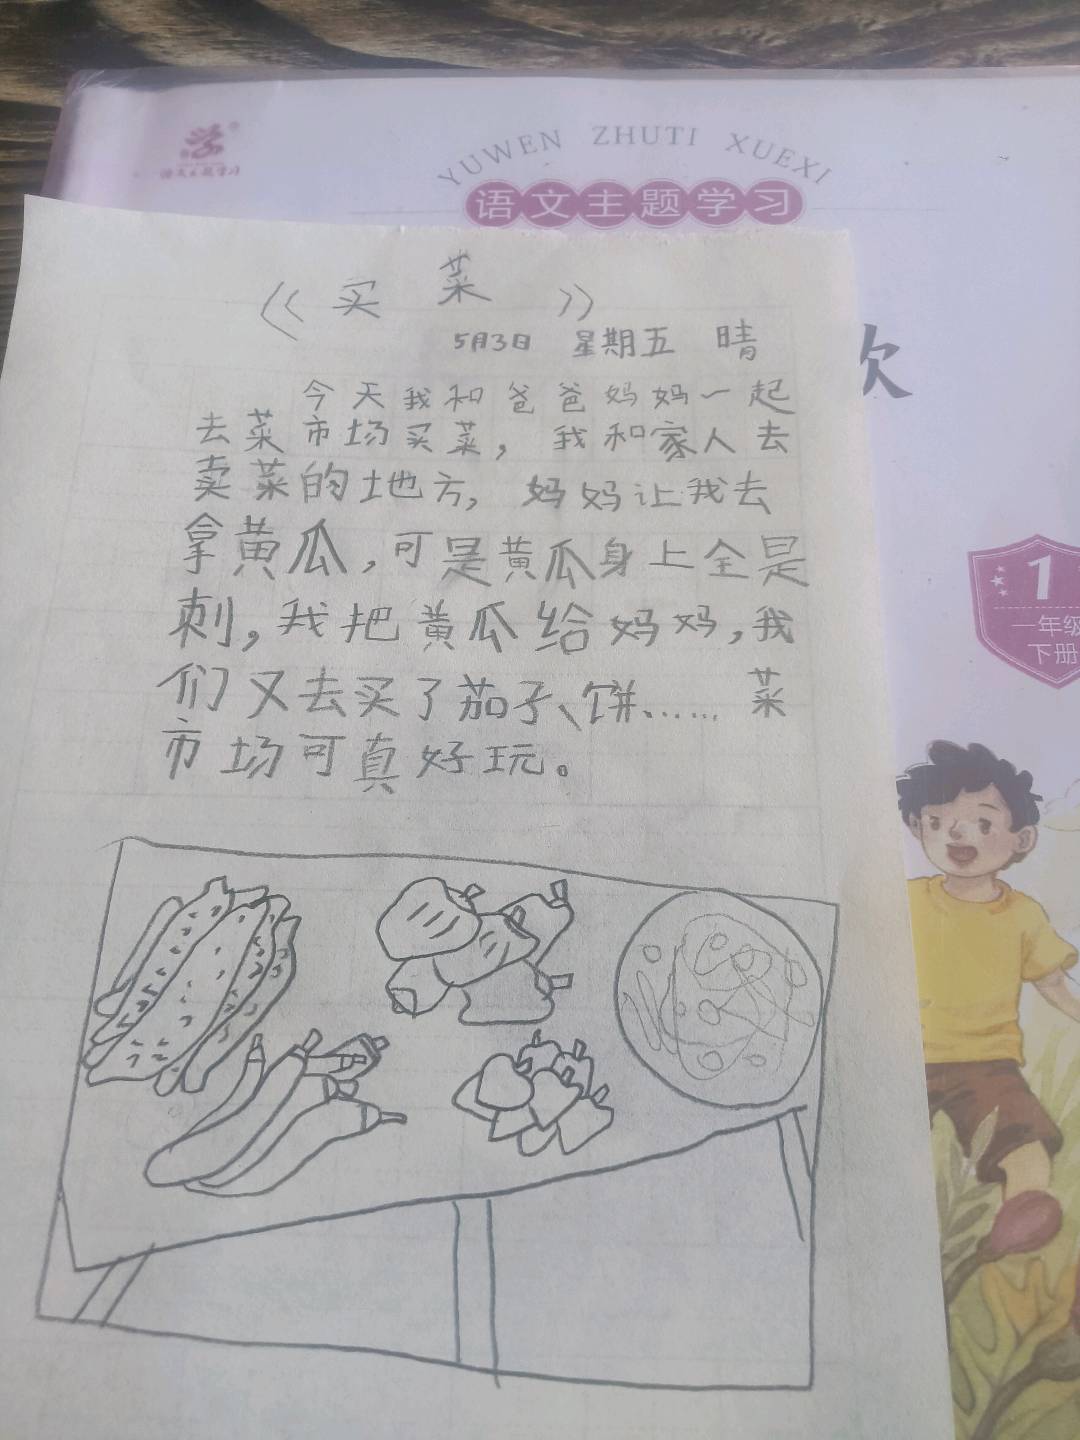 YUWEN ZHUTI XUEXI
语文主题学习
语文主题学习
《买菜》
5月3日 星期五 晴
今天我和爸爸妈妈一起
去菜市场买菜，我和家人去
卖菜的地方，妈妈让我去
拿黄瓜，可是黄瓜身上全是
刺，我把黄瓜给妈妈，我
们又去买了茄子、饼、…… 菜
市场可真好玩。
欢
1
一年级
下册